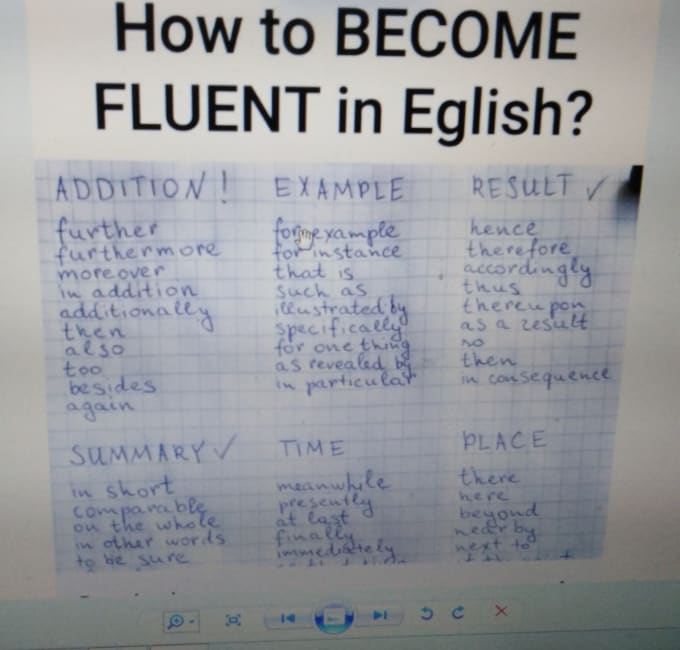 How to BECOME
FLUENT in Eglish?
ADDITION!
further
furthermore
moreover
in addition
additionally
then
also
too
besides
again
EXAMPLE
for example
for instance
that is
such as
illustrated by
specifically
for one thing
as revealed by
in particular
RESULT ✓
hence
therefore
accordingly
thus
thereupon
as a result
so
then
in consequence
SUMMARY ✓
in short
comparable
on the whole
in other words
to be sure
TIME
meanwhile
presently
at last
finally
immediately
PLACE
there
here
beyond
nearby
next to